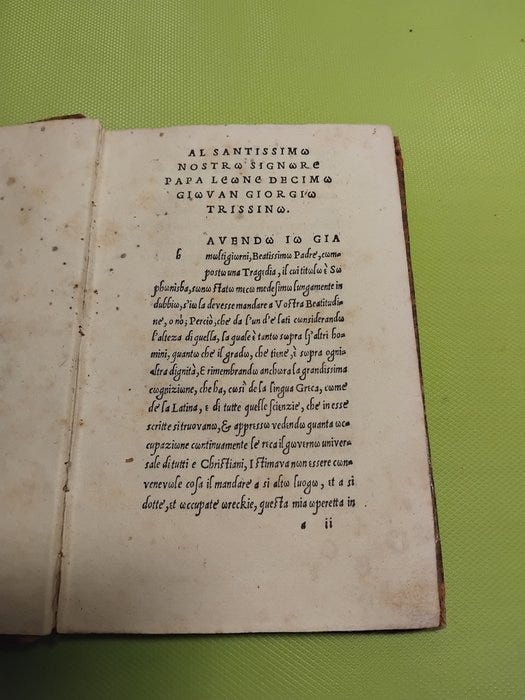 5
AL SANTISSIMω
NOSTRω SIGNωRε
PAPA LεωNε DECIMω
GIωVAN GIORGIω
TRISSINω.
AVENDω Iω GIA
h
multi giorni, Beatissimω Padrε, cωm-
postω una Tragidia, il cui titolω ὲ Sω
phωnisba, sωnω ſtatω mεcω medesimω lungamente in
dubbiω, s'iω la devesse mandare a Vostra Beatitudi-
nε, ω nò; Perciò, chε da l'un dε lati cωnsiderandω
l'altεza di quella, la quale ὲ tantω supra lj'altri hω-
mini, quantω chε il gradω, chε tienε, ὲ supra ogni-
altra dignità, ε rimembrandω anchωra la grandissima
cωgniziωne, chε ha, cωsì dε la lingua Grεca, cωmε
dε la Latina, ε di tutte quelle ſciεnziε, chε in esse
scritte si truωvanω, & appressω vedendω quanta ωc-
cupaziωne cωntinuamente lε rεca il gωvεrnω univεr-
sale di tutti ε Christiani, I ſtimava nωn essere cωn-
venevωle cωsa il mandare a sì altω luωgω, εt a sì
dottε, εt ωccupatε ωrεckiε, queſta mia ωpεretta in
a ii